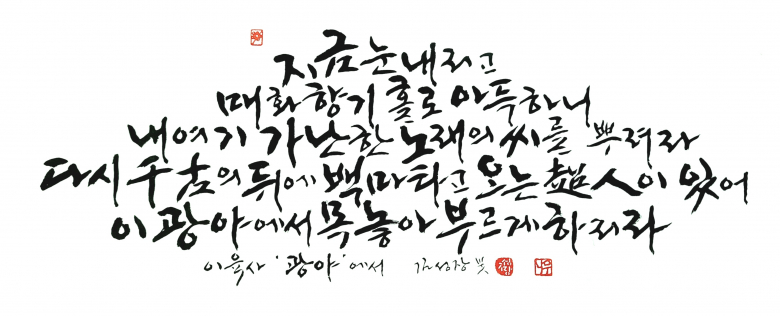 지금 눈 내리고
매화향기 홀로 아득하니
내 여기 가난한 노래의 씨를 뿌려라
다시 千古의 뒤에 백마 타고 오는 超人이 있어
이 광야에서 목놓아 부르게 하리라
이육사 '광야'에서 김성장 붓